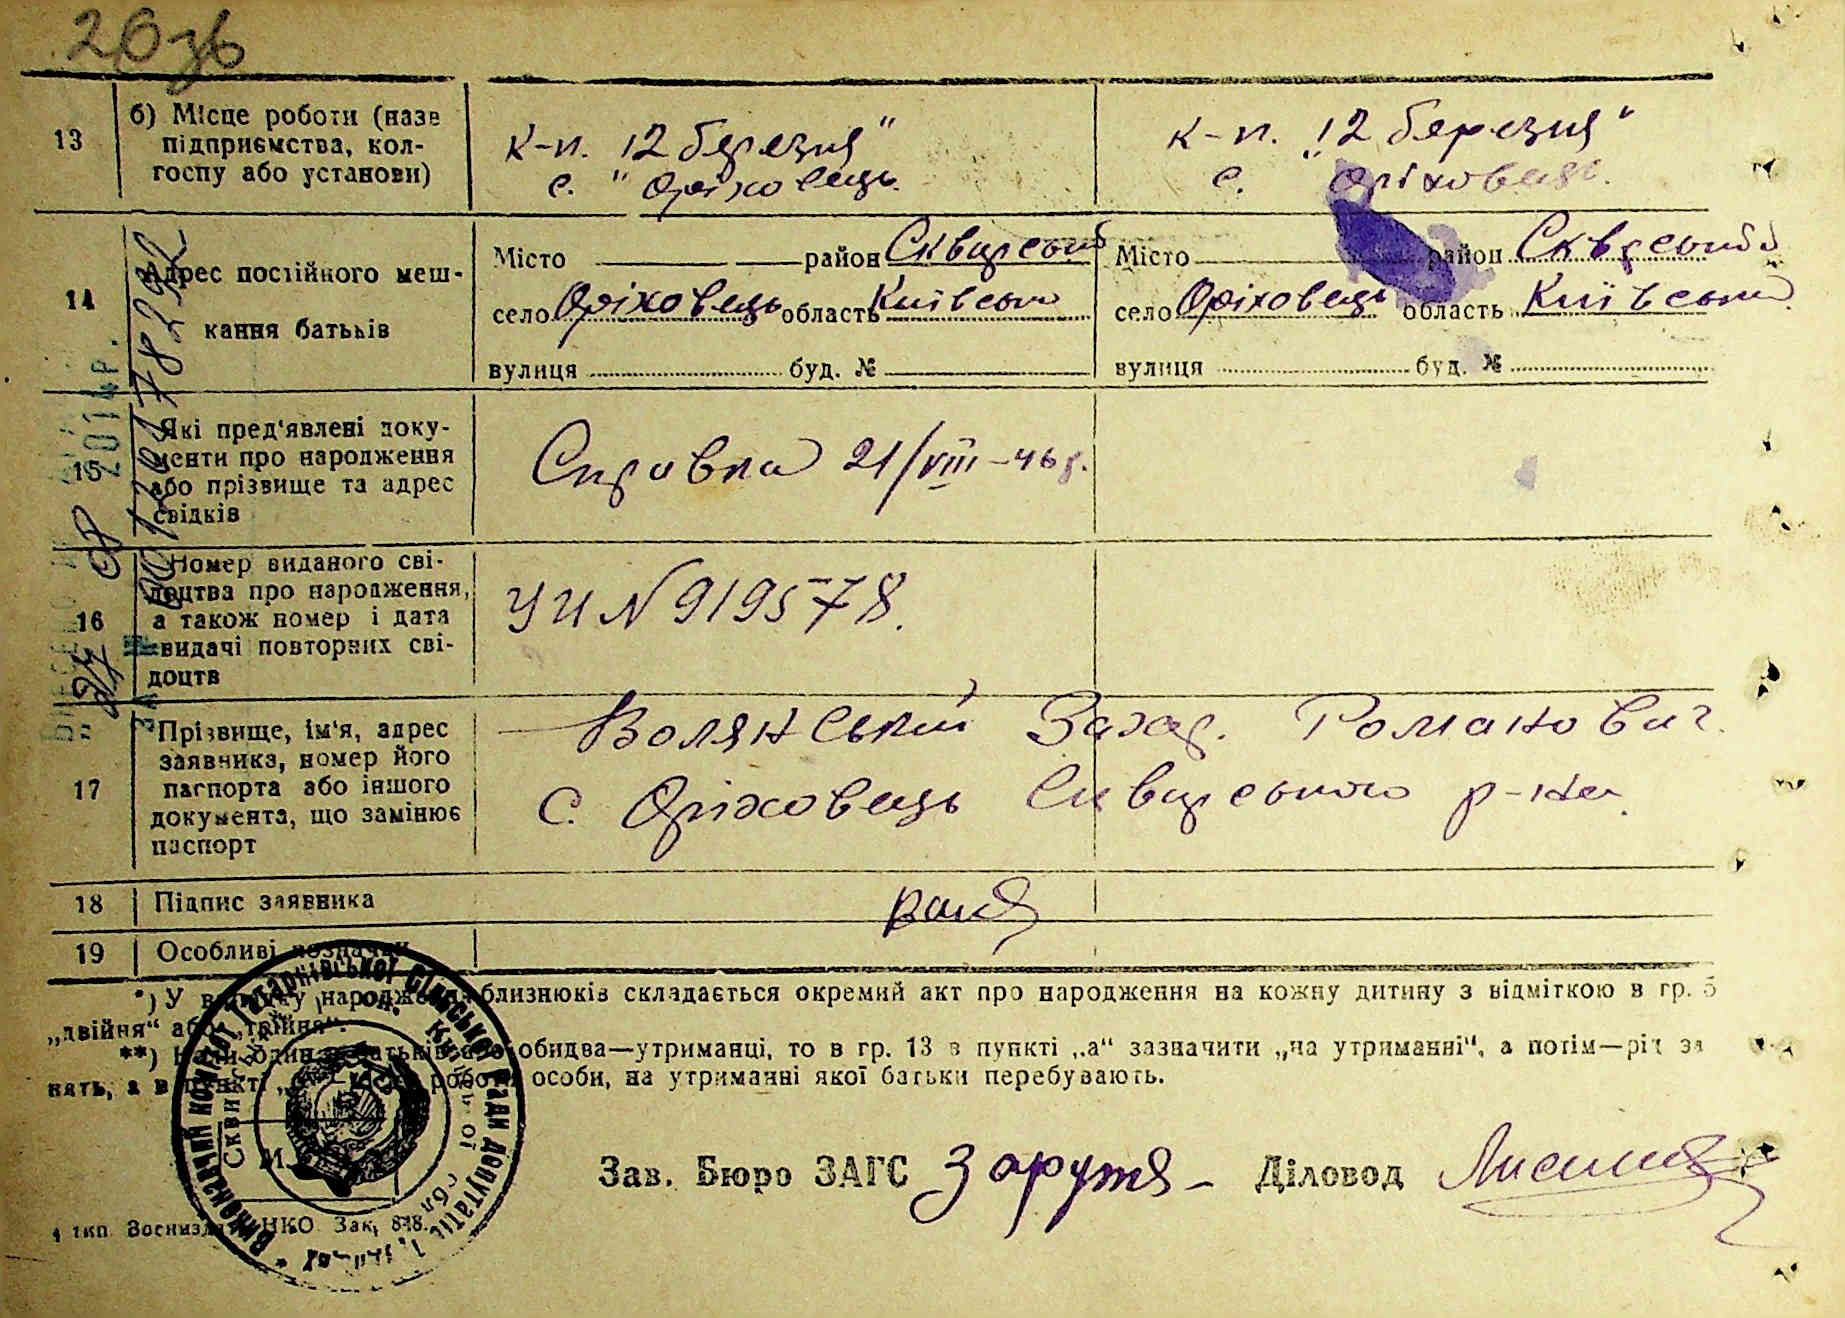 26 зв
13
б) Місце роботи (назв
підприємства, кол-
госпу або установи)
к-п. "12 березня"
с. Оріховець.
к-п. "12 березня"
с. Оріховець.
14
Адрес постійного меш-
кання батьків
Місто район Сквирський
село Оріховець область Київська
вулиця буд. №
Місто район Сквирський
село Оріховець область Київська
вулиця буд. №
15
Які пред'явлені доку-
менти про народження
або прізвище та адрес
свідків
Справка 21/VIII-46 р.
16
Номер виданого сві-
доцтва про народження,
а також номер і дата
видачі повторних сві-
доцтв
УИ N 919578.
17
Прізвище, ім'я, адрес
заявника, номер його
паспорта або іншого
документа, що замінює
паспорт
Волянський Захар. Романович.
с. Оріховець Сквирського р-на.
18
Підпис заявника
19
Особливі позначки
*) У випадку народження близнюків складається окремий акт про народження на кожну дитину з відміткою в гр. 5
„двійня“ або „трійня“.
**) Коли один з батьків або обидва—утриманці, то в гр. 13 в пункті „а“ зазначити „на утриманні“, а потім—рід за
нять, а в пункті роботи особи, на утриманні якої батьки перебувають.
Зав. Бюро ЗАГС Зарутя Діловод
4 тип. Воениздата НКО Зак. 848.
2014р.
Виконавчий комітет Сільської Ради депутатів